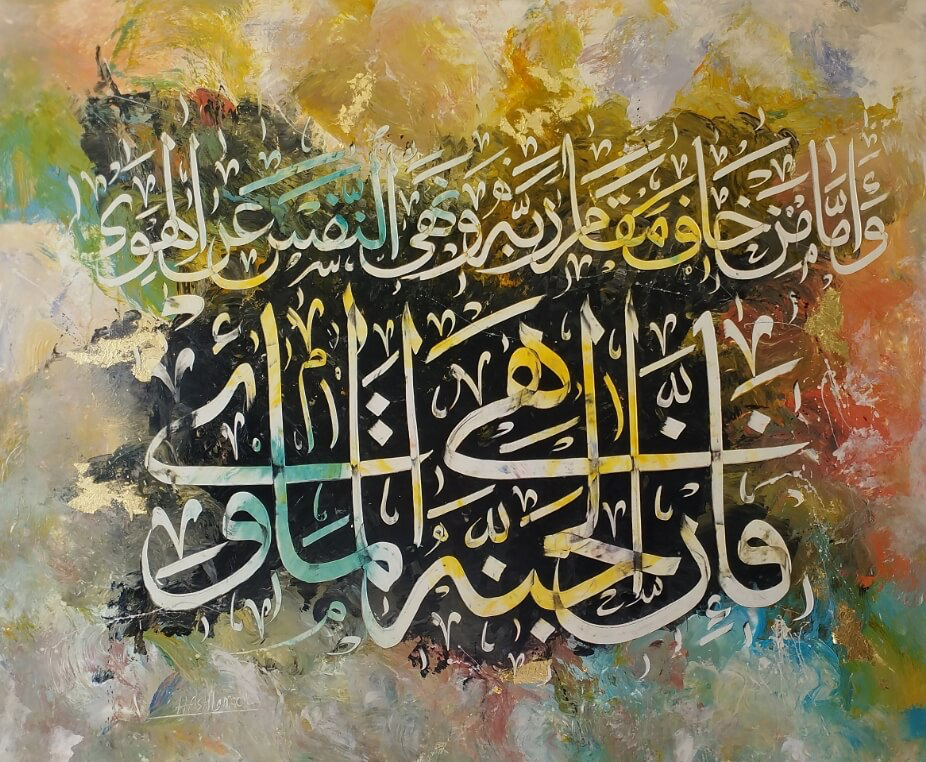 وَأَمَّا مَنْ خَافَ مَقَامَ رَبِّهِ وَنَهَى النَّفْسَ عَنِ الْهَوَىٰ
فَإِنَّ الْجَنَّةَ هِيَ الْمَأْوَىٰ